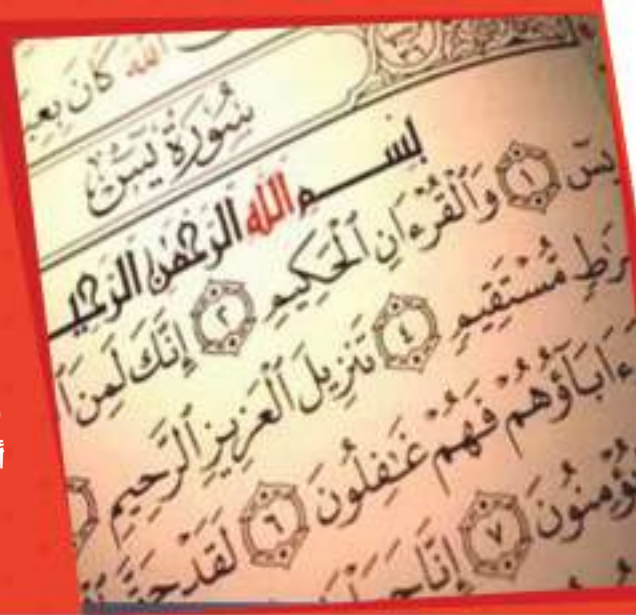 الله كَانَ بِعِبَ
سُورَةُ يسٓ
بِسْمِ اللهِ الرَّحْمَٰنِ الرَّحِيـ
يسٓ ١ وَٱلْقُرْءَانِ ٱلْحَكِيمِ ٢ إِنَّكَ لَمِنَ ٱ
رَٰطٍ مُّسْتَقِيمٍ ٤ تَنزِيلَ ٱلْعَزِيزِ ٱلرَّحِيمِ
ءَابَآؤُهُمْ فَهُمْ غَٰفِلُونَ ٦ لَقَدْ حَقَّ
ؤْمِنُونَ ٧ إِنَّا جَ